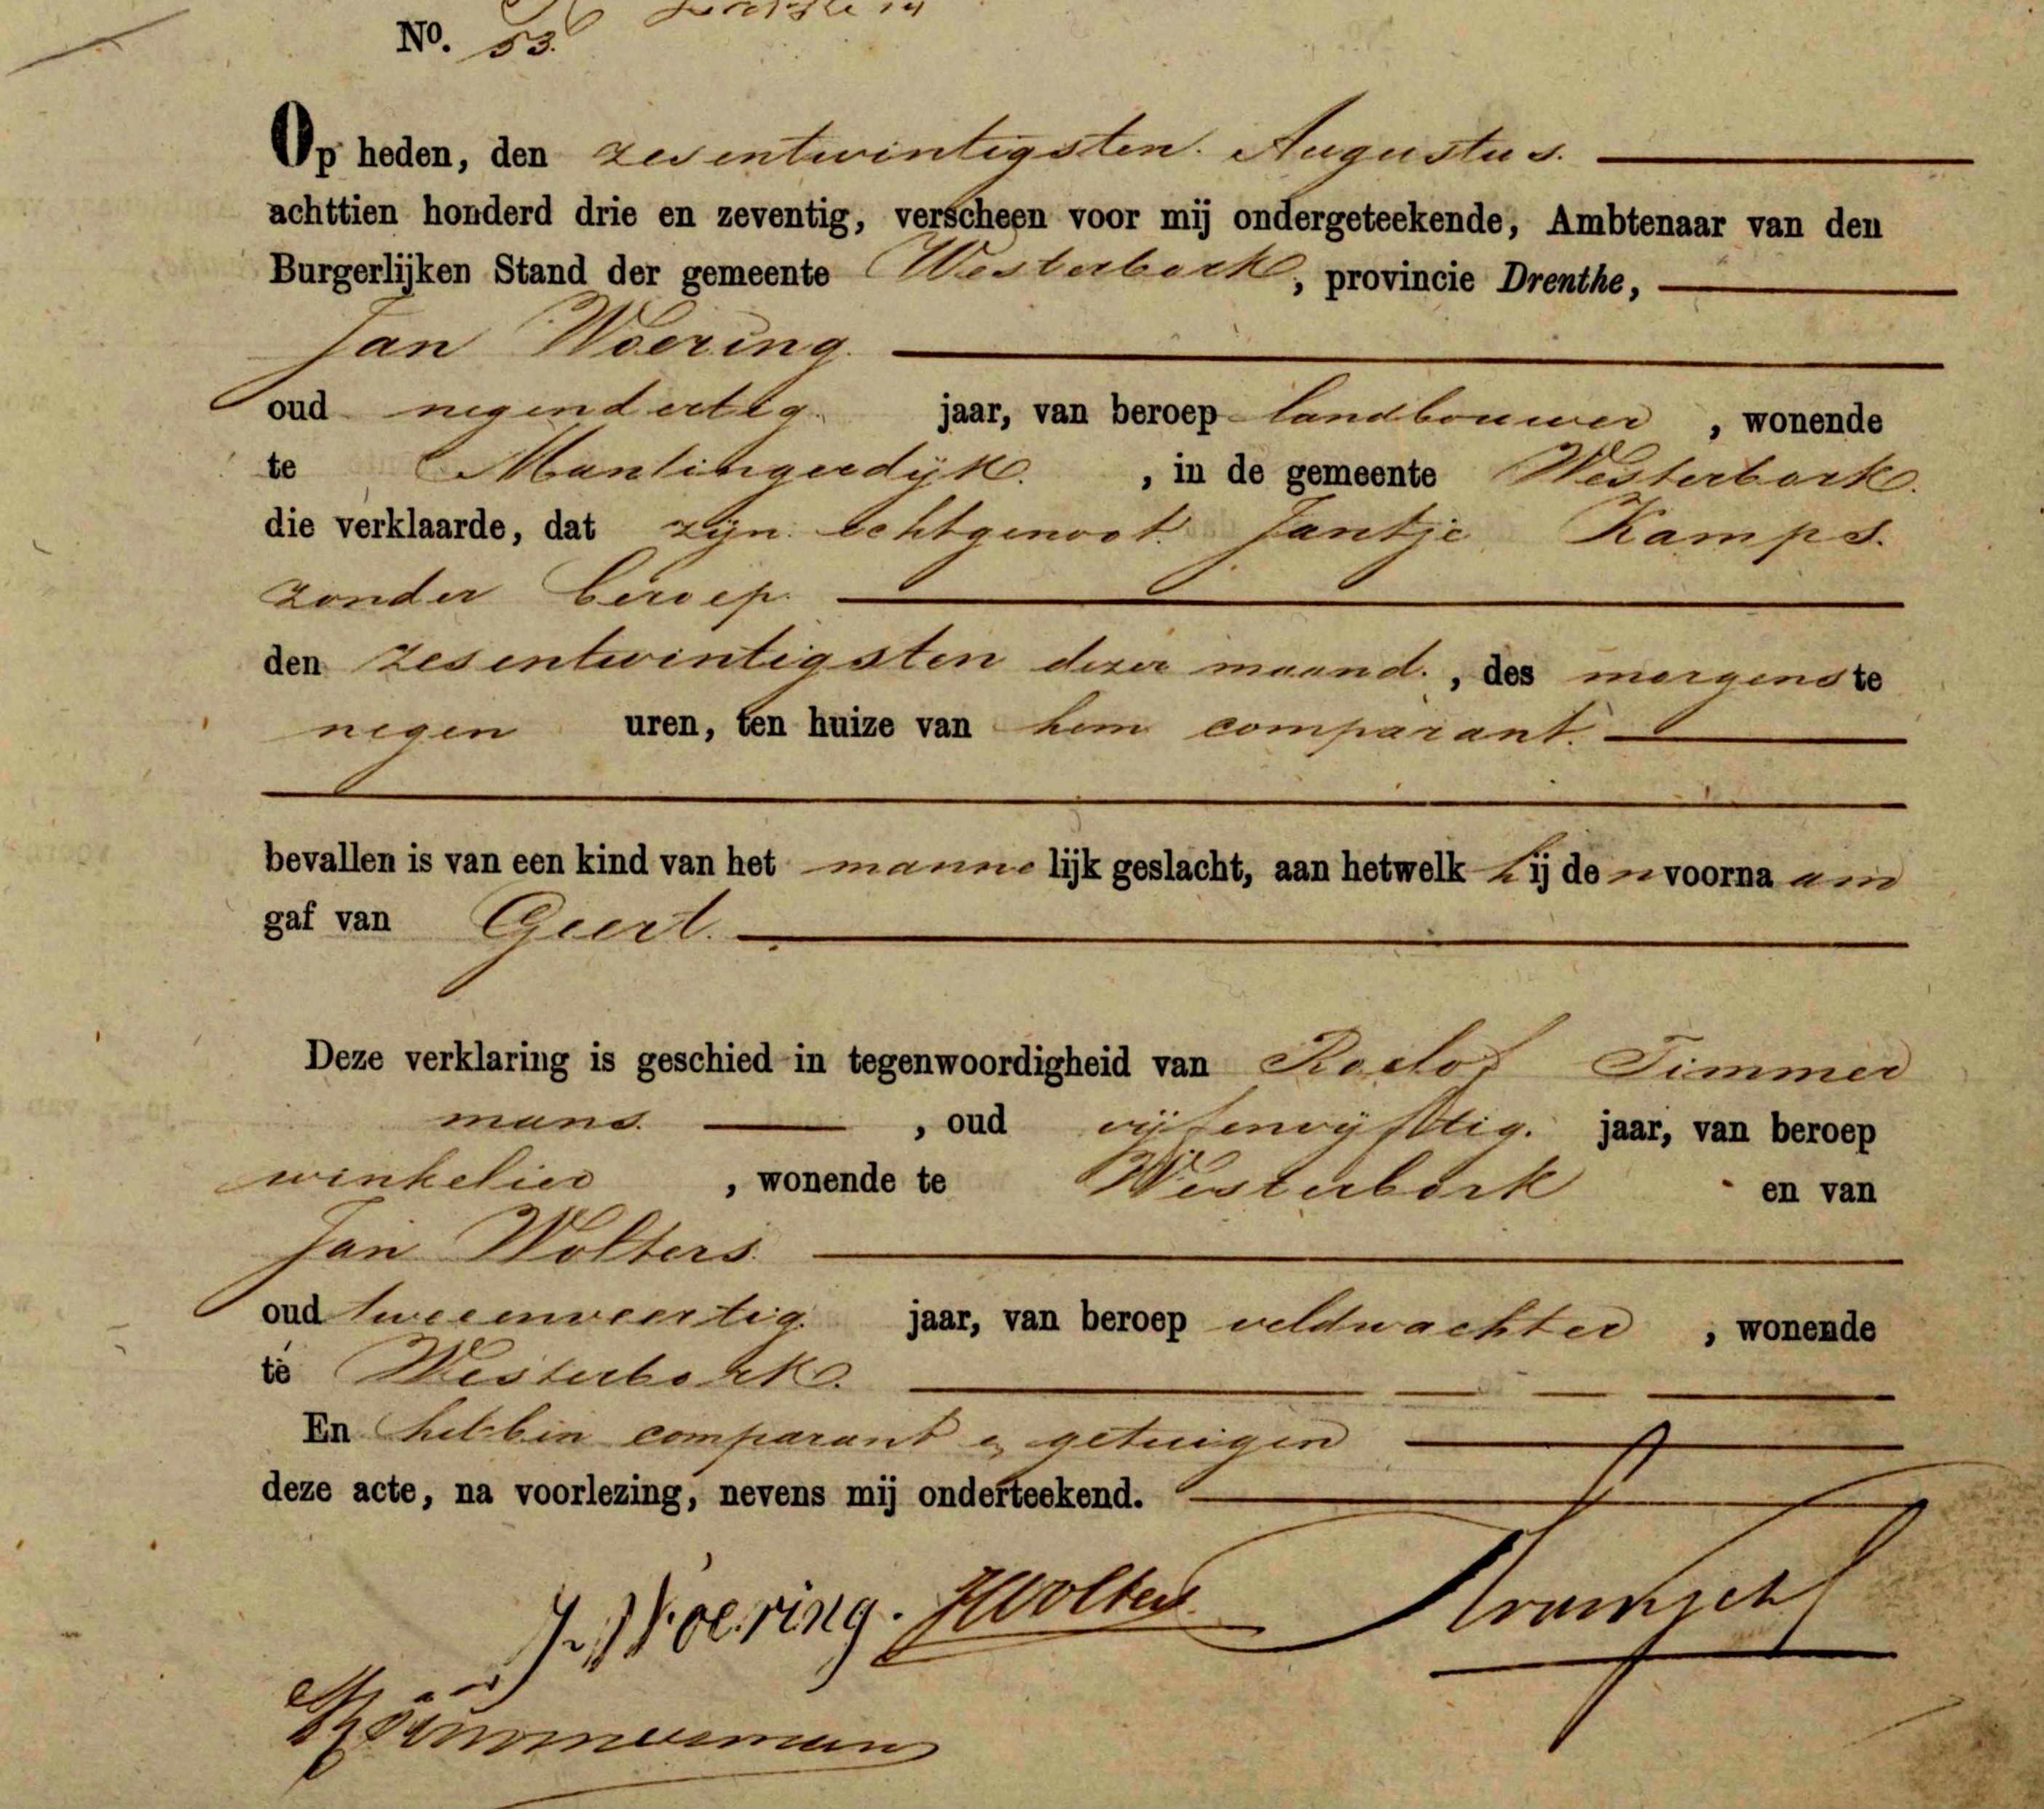 No. 53.
Op heden, den zesentwintigsten Augustus.
achttien honderd drie en zeventig, verscheen voor mij ondergeteekende, Ambtenaar van den
Burgerlijken Stand der gemeente Westerbork, provincie Drenthe,
Jan Woering.
oud negendertig jaar, van beroep landbouwer, wonende
te Mantingerdijk., in de gemeente Westerbork.
die verklaarde, dat zijn echtgenoot Jantje Kamps.
zonder beroep.
den zesentwintigsten dezer maand., des morgens te
negen uren, ten huize van hem comparant.
bevallen is van een kind van het mannelijk geslacht, aan hetwelk hij den voornaam
gaf van Geert.
Deze verklaring is geschied in tegenwoordigheid van Roelof Timmer
mans., oud vijfenvijftig. jaar, van beroep
winkelier, wonende te Westerbork en van
Jan Wolters.
oud tweeenveertig. jaar, van beroep veldwachter, wonende
te Westerbork.
En hebben comparant en getuigen
deze acte, na voorlezing, nevens mij onderteekend.
J. Woering. JWolters
RTimmerman